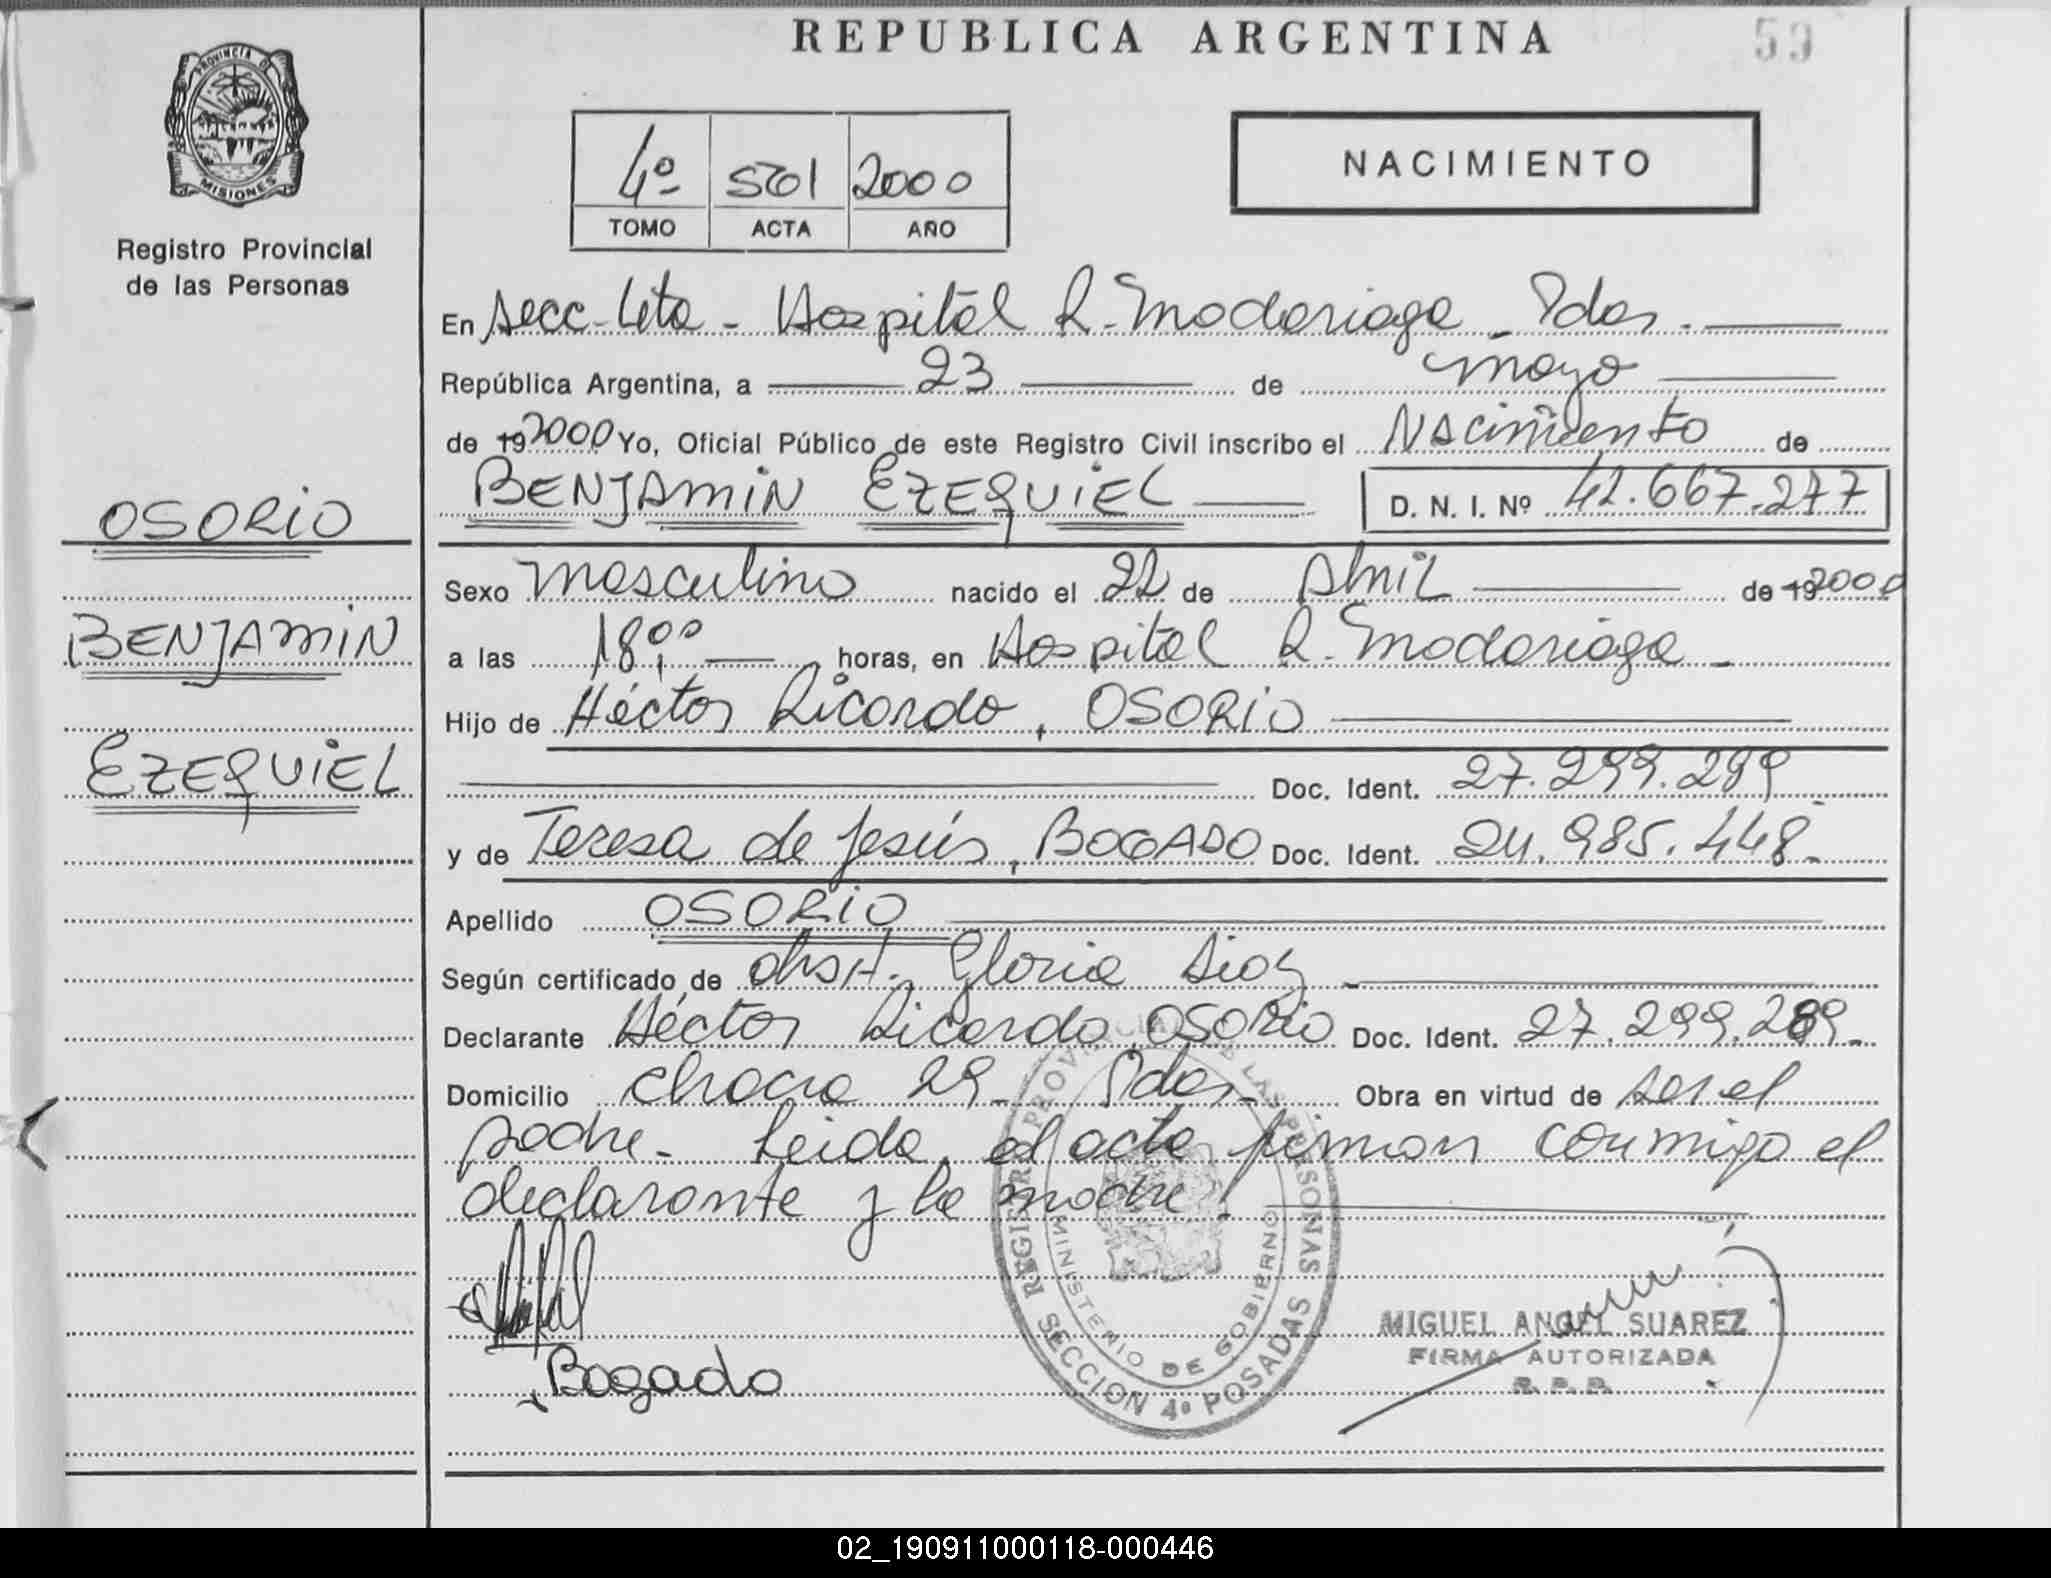 REPUBLICA ARGENTINA
59
PROVINCIA DE
MISIONES
Registro Provincial
de las Personas
4º 501 2000
TOMO ACTA AÑO
NACIMIENTO
En Secc. 4ta - Hospital R. Madariaga - Pdas.
República Argentina, a 23 de mayo
de 19 2000 Yo, Oficial Público de este Registro Civil inscribo el Nacimiento de
BENJAMIN EZEQUIEL D. N. I. Nº 42.667.277
OSORIO
Sexo masculino nacido el 22 de Abril de 19 2000
BENJAMIN
a las 18,00 horas, en Hospital R. Madariaga -
Hijo de Héctor Ricardo, OSORIO
EZEQUIEL
Doc. Ident. 27.299.289
y de Teresa de Jesús, BOGADO Doc. Ident. 24.985.448.-
Apellido OSORIO
Según certificado de obst. Gloria
Declarante Héctor Ricardo OSORIO Doc. Ident. 27.299.289.-
Domicilio chacra 29 - Pdas - Obra en virtud de ser el
padre - Leida el acta firman conmigo el
declarante y la madre
REGISTRO PROVINCIAL DE LAS PERSONAS
MINISTERIO DE GOBIERNO
SECCION 4º POSADAS
MIGUEL ANGEL SUAREZ
FIRMA AUTORIZADA
R. P. P.
Bogado
02_190911000118-000446